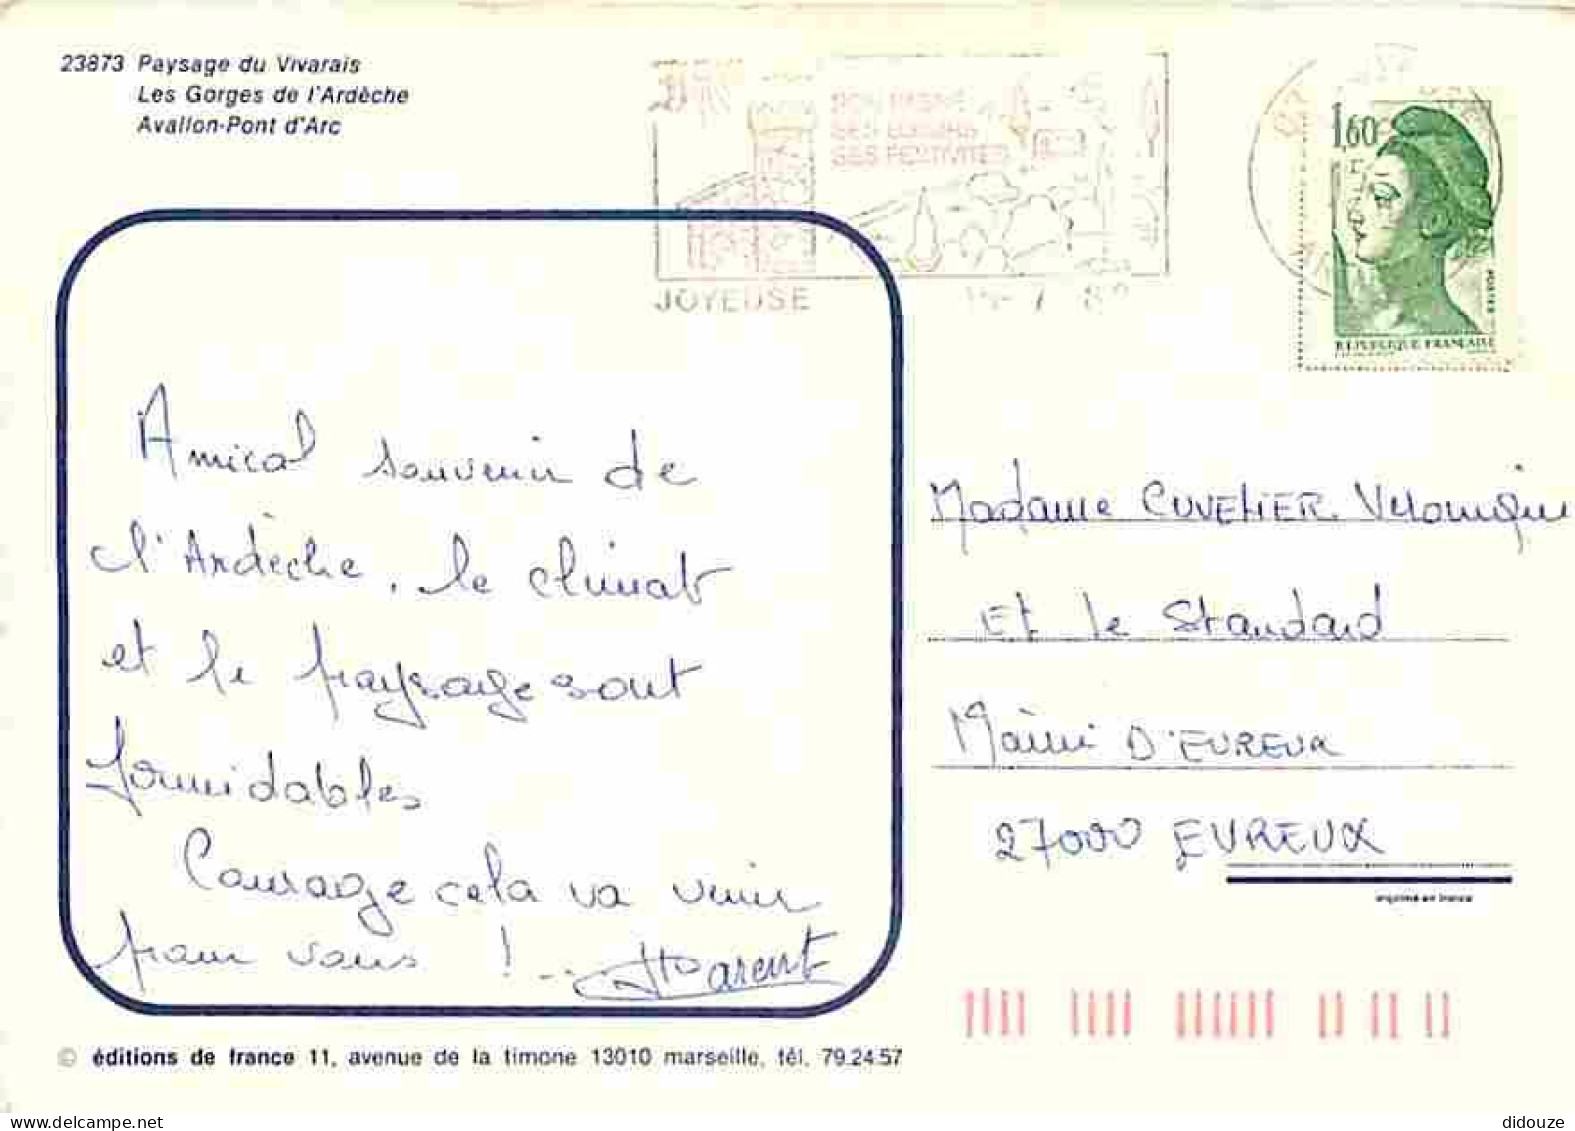 23873 Paysage du Vivarais
Les Gorges de l'Ardèche
Avallon-Pont d'Arc
SES LOISIRS
SES FESTIVITES
JOYEUSE
7
1,60
POSTES
REPUBLIQUE FRANCAISE
Amical souvenir de
l'Ardèche, le climat
et le paysage sont
formidables
Courage cela va venir
pour vous !
Parent
Madame CUVELIER Véronique
Et le Standard
Mairie D'EVREUX
27000 EVREUX
imprimé en france
© éditions de france 11, avenue de la timone 13010 marseille, tél. 79.24.57
delcampe.net
didouze